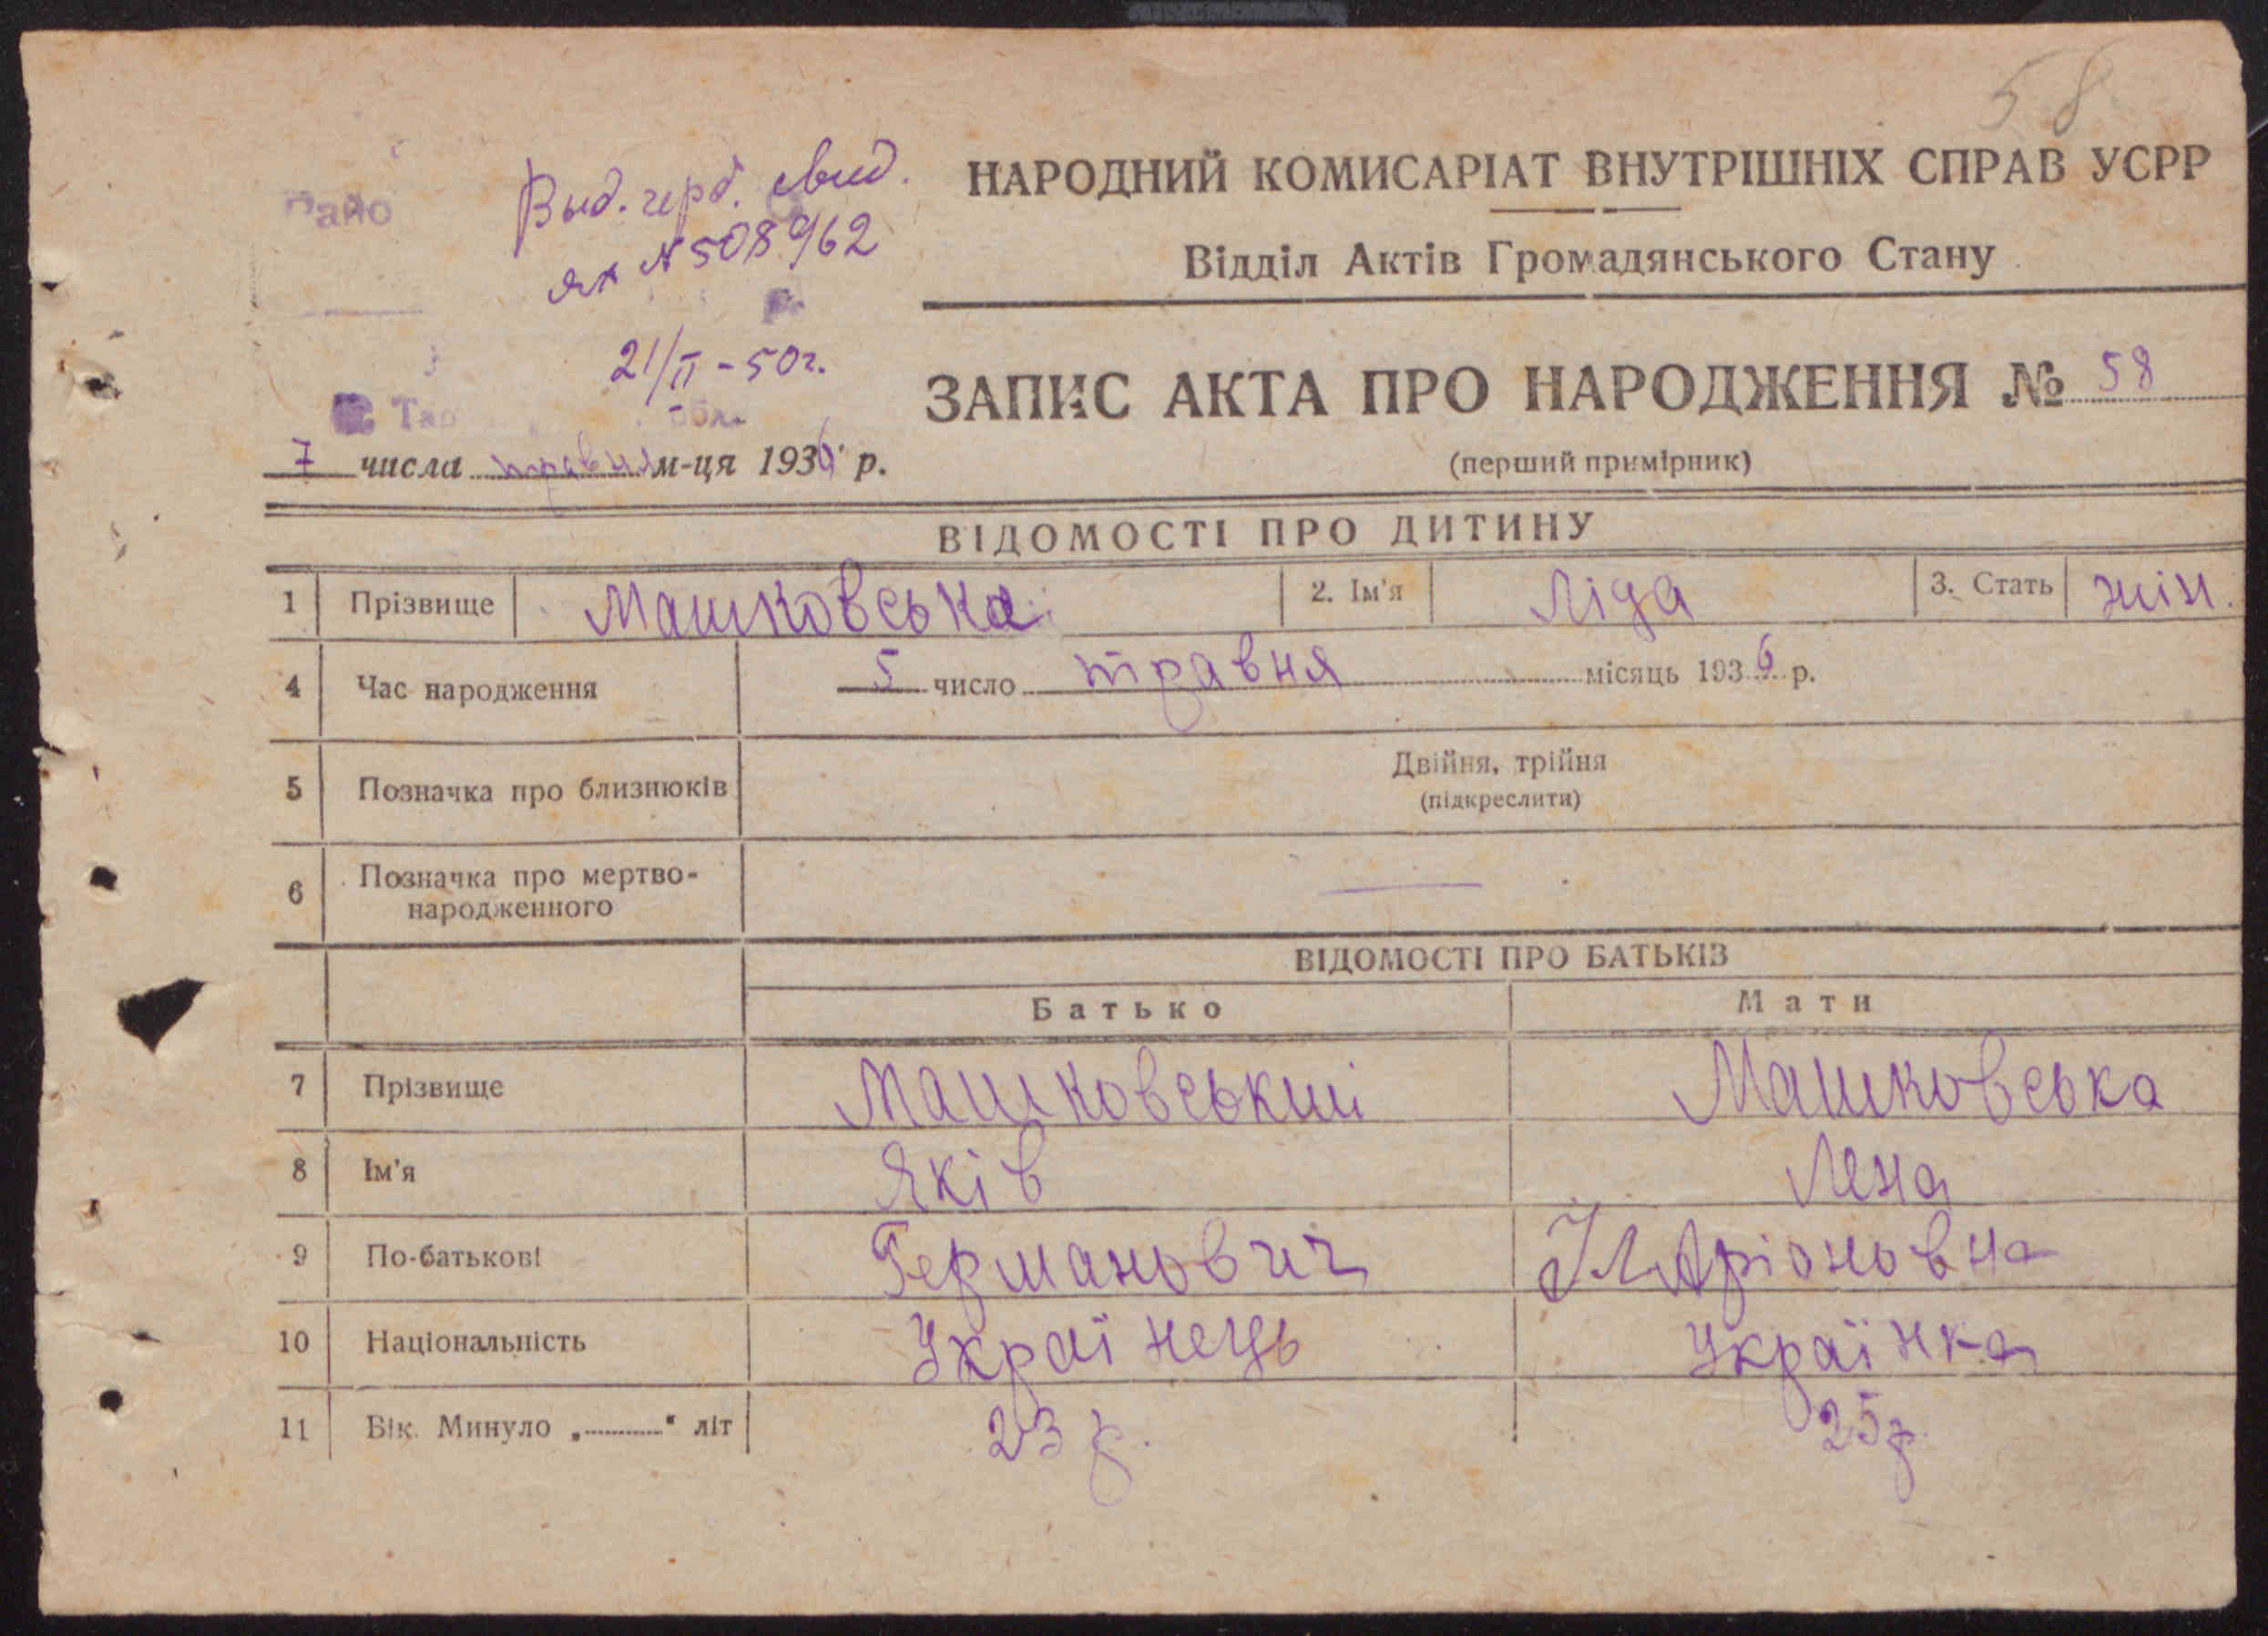 58
НАРОДНИЙ КОМИСАРІАТ ВНУТРІШНІХ СПРАВ УСРР
Відділ Актів Громадянського Стану
Выд. герб. свид.
№ 508962
21/II - 50г.
обл.
ЗАПИС АКТА ПРО НАРОДЖЕННЯ № 58
(перший примірник)
7 числа травня м-ця 1936 р.
ВІДОМОСТІ ПРО ДИТИНУ
1 Прізвище Машковська 2. Ім'я Ліда 3. Стать жін.
4 Час народження 5 число травня місяць 1936 р.
5 Позначка про близнюків Двійня, трійня
(підкреслити)
6 Позначка про мертво-
народженного
ВІДОМОСТІ ПРО БАТЬКІВ
Батько Мати
7 Прізвище Машковський Машковська
8 Ім'я Яків Лєна
9 По-батькові Германович Іларіоновна
10 Національність Українець Українка
11 Вік. Минуло „..........“ літ 23 р. 25 р.